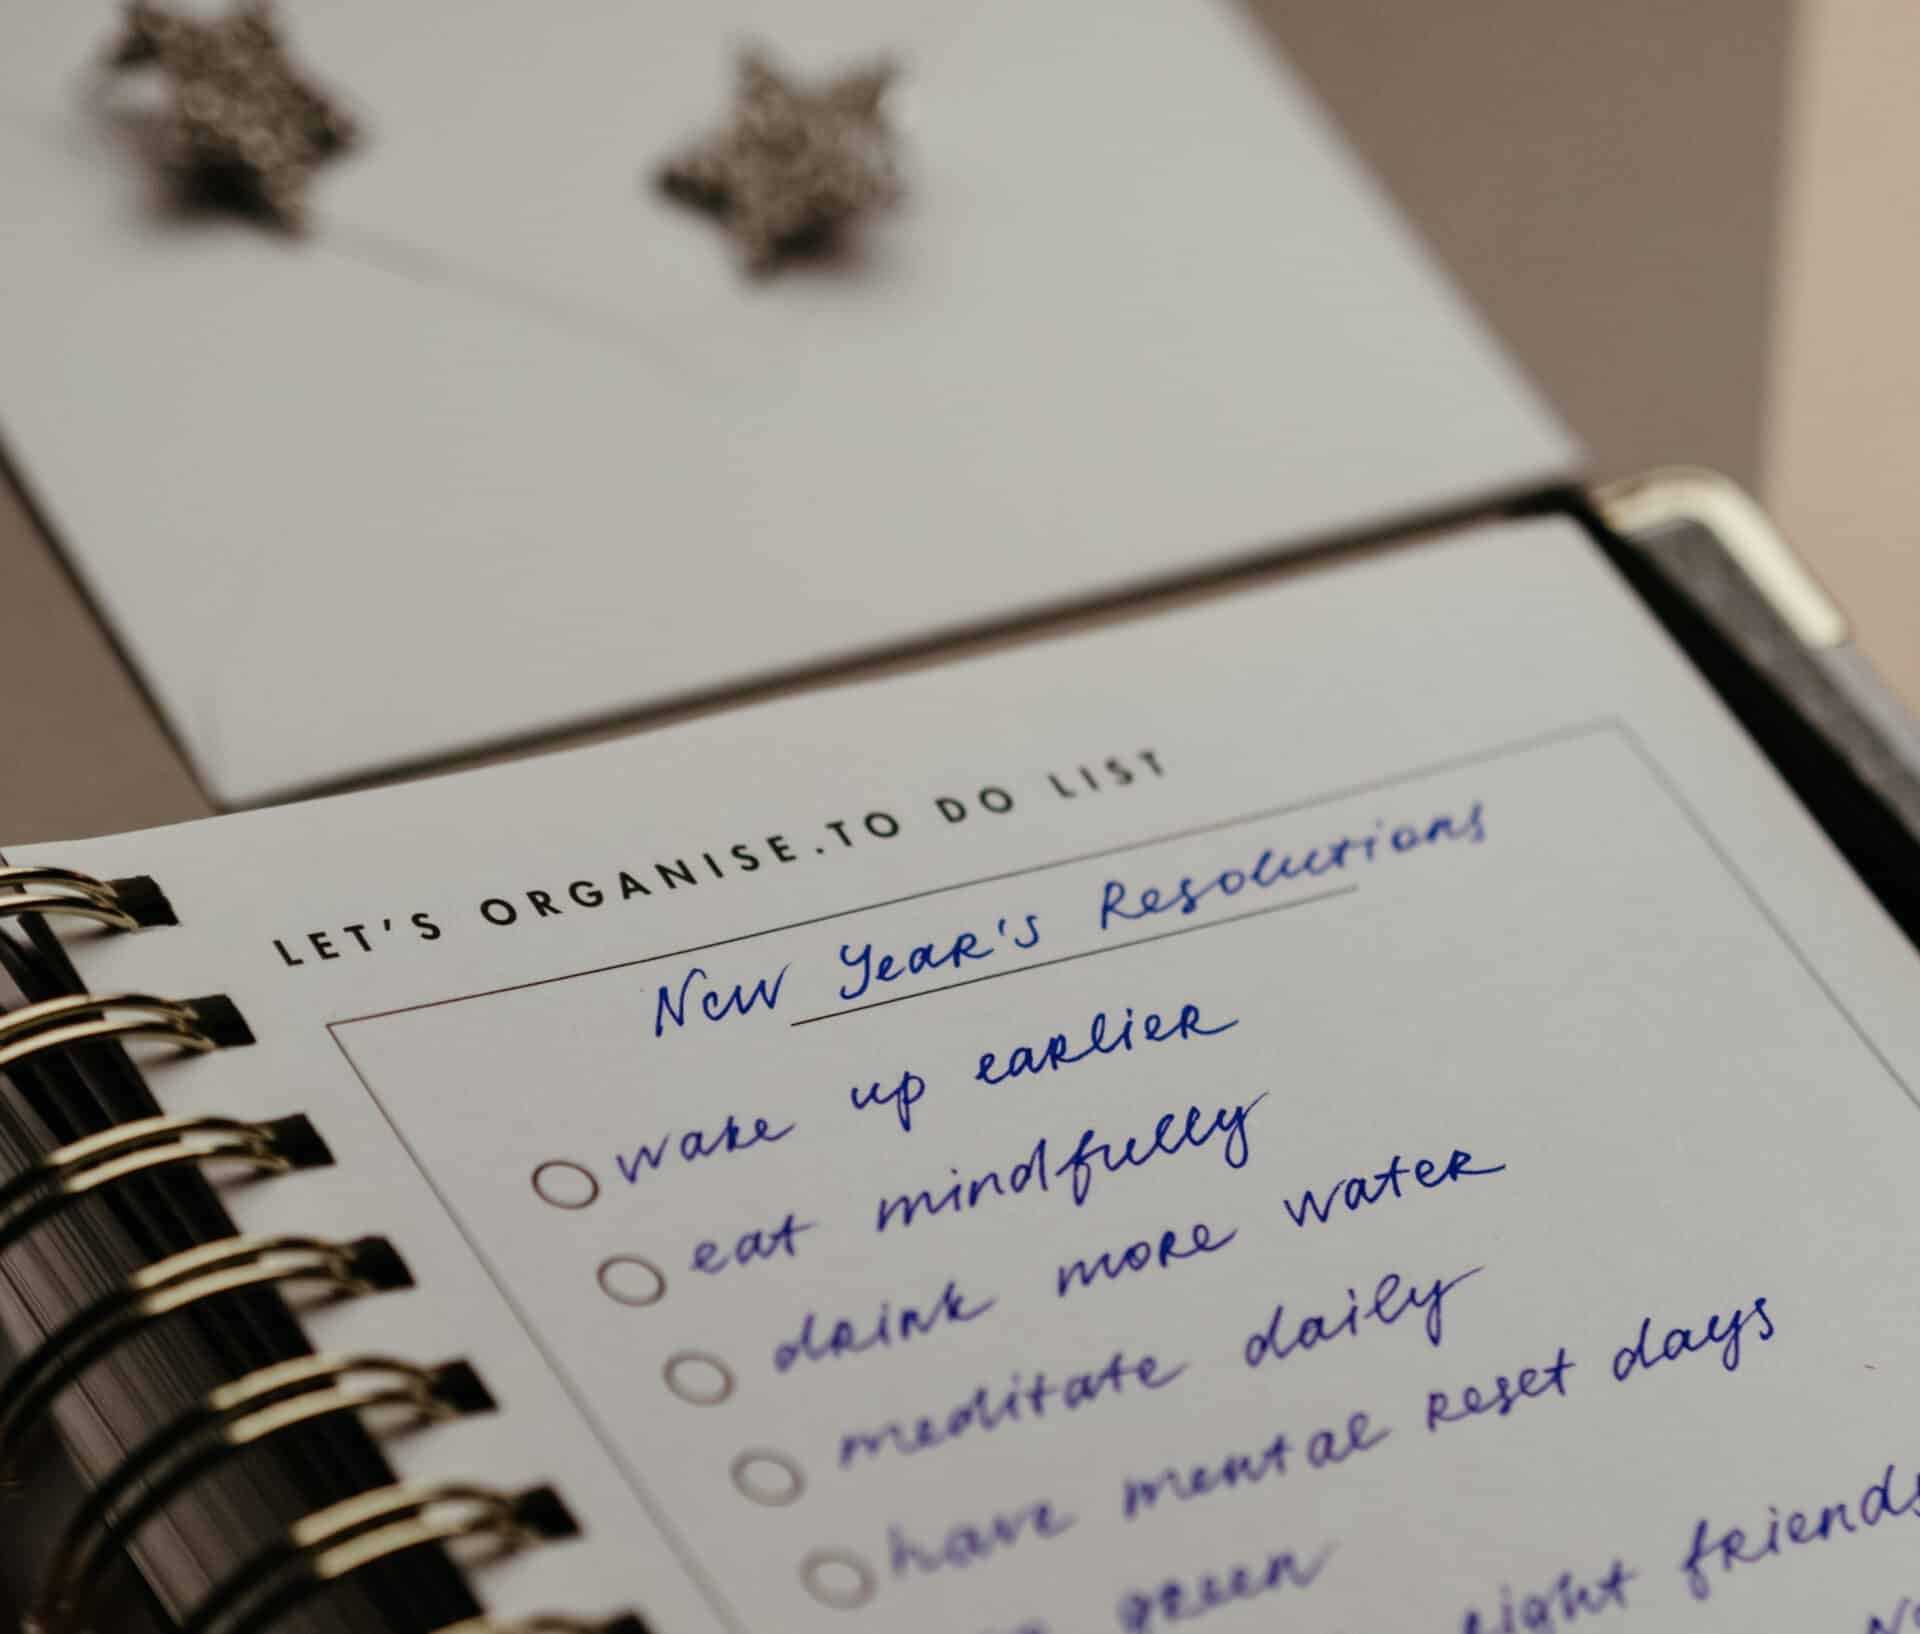 LET'S ORGANISE.TO DO LIST
New Year's Resolutions
wake up earlier
eat mindfully
drink more water
meditate daily
have mental reset days
green
right friends